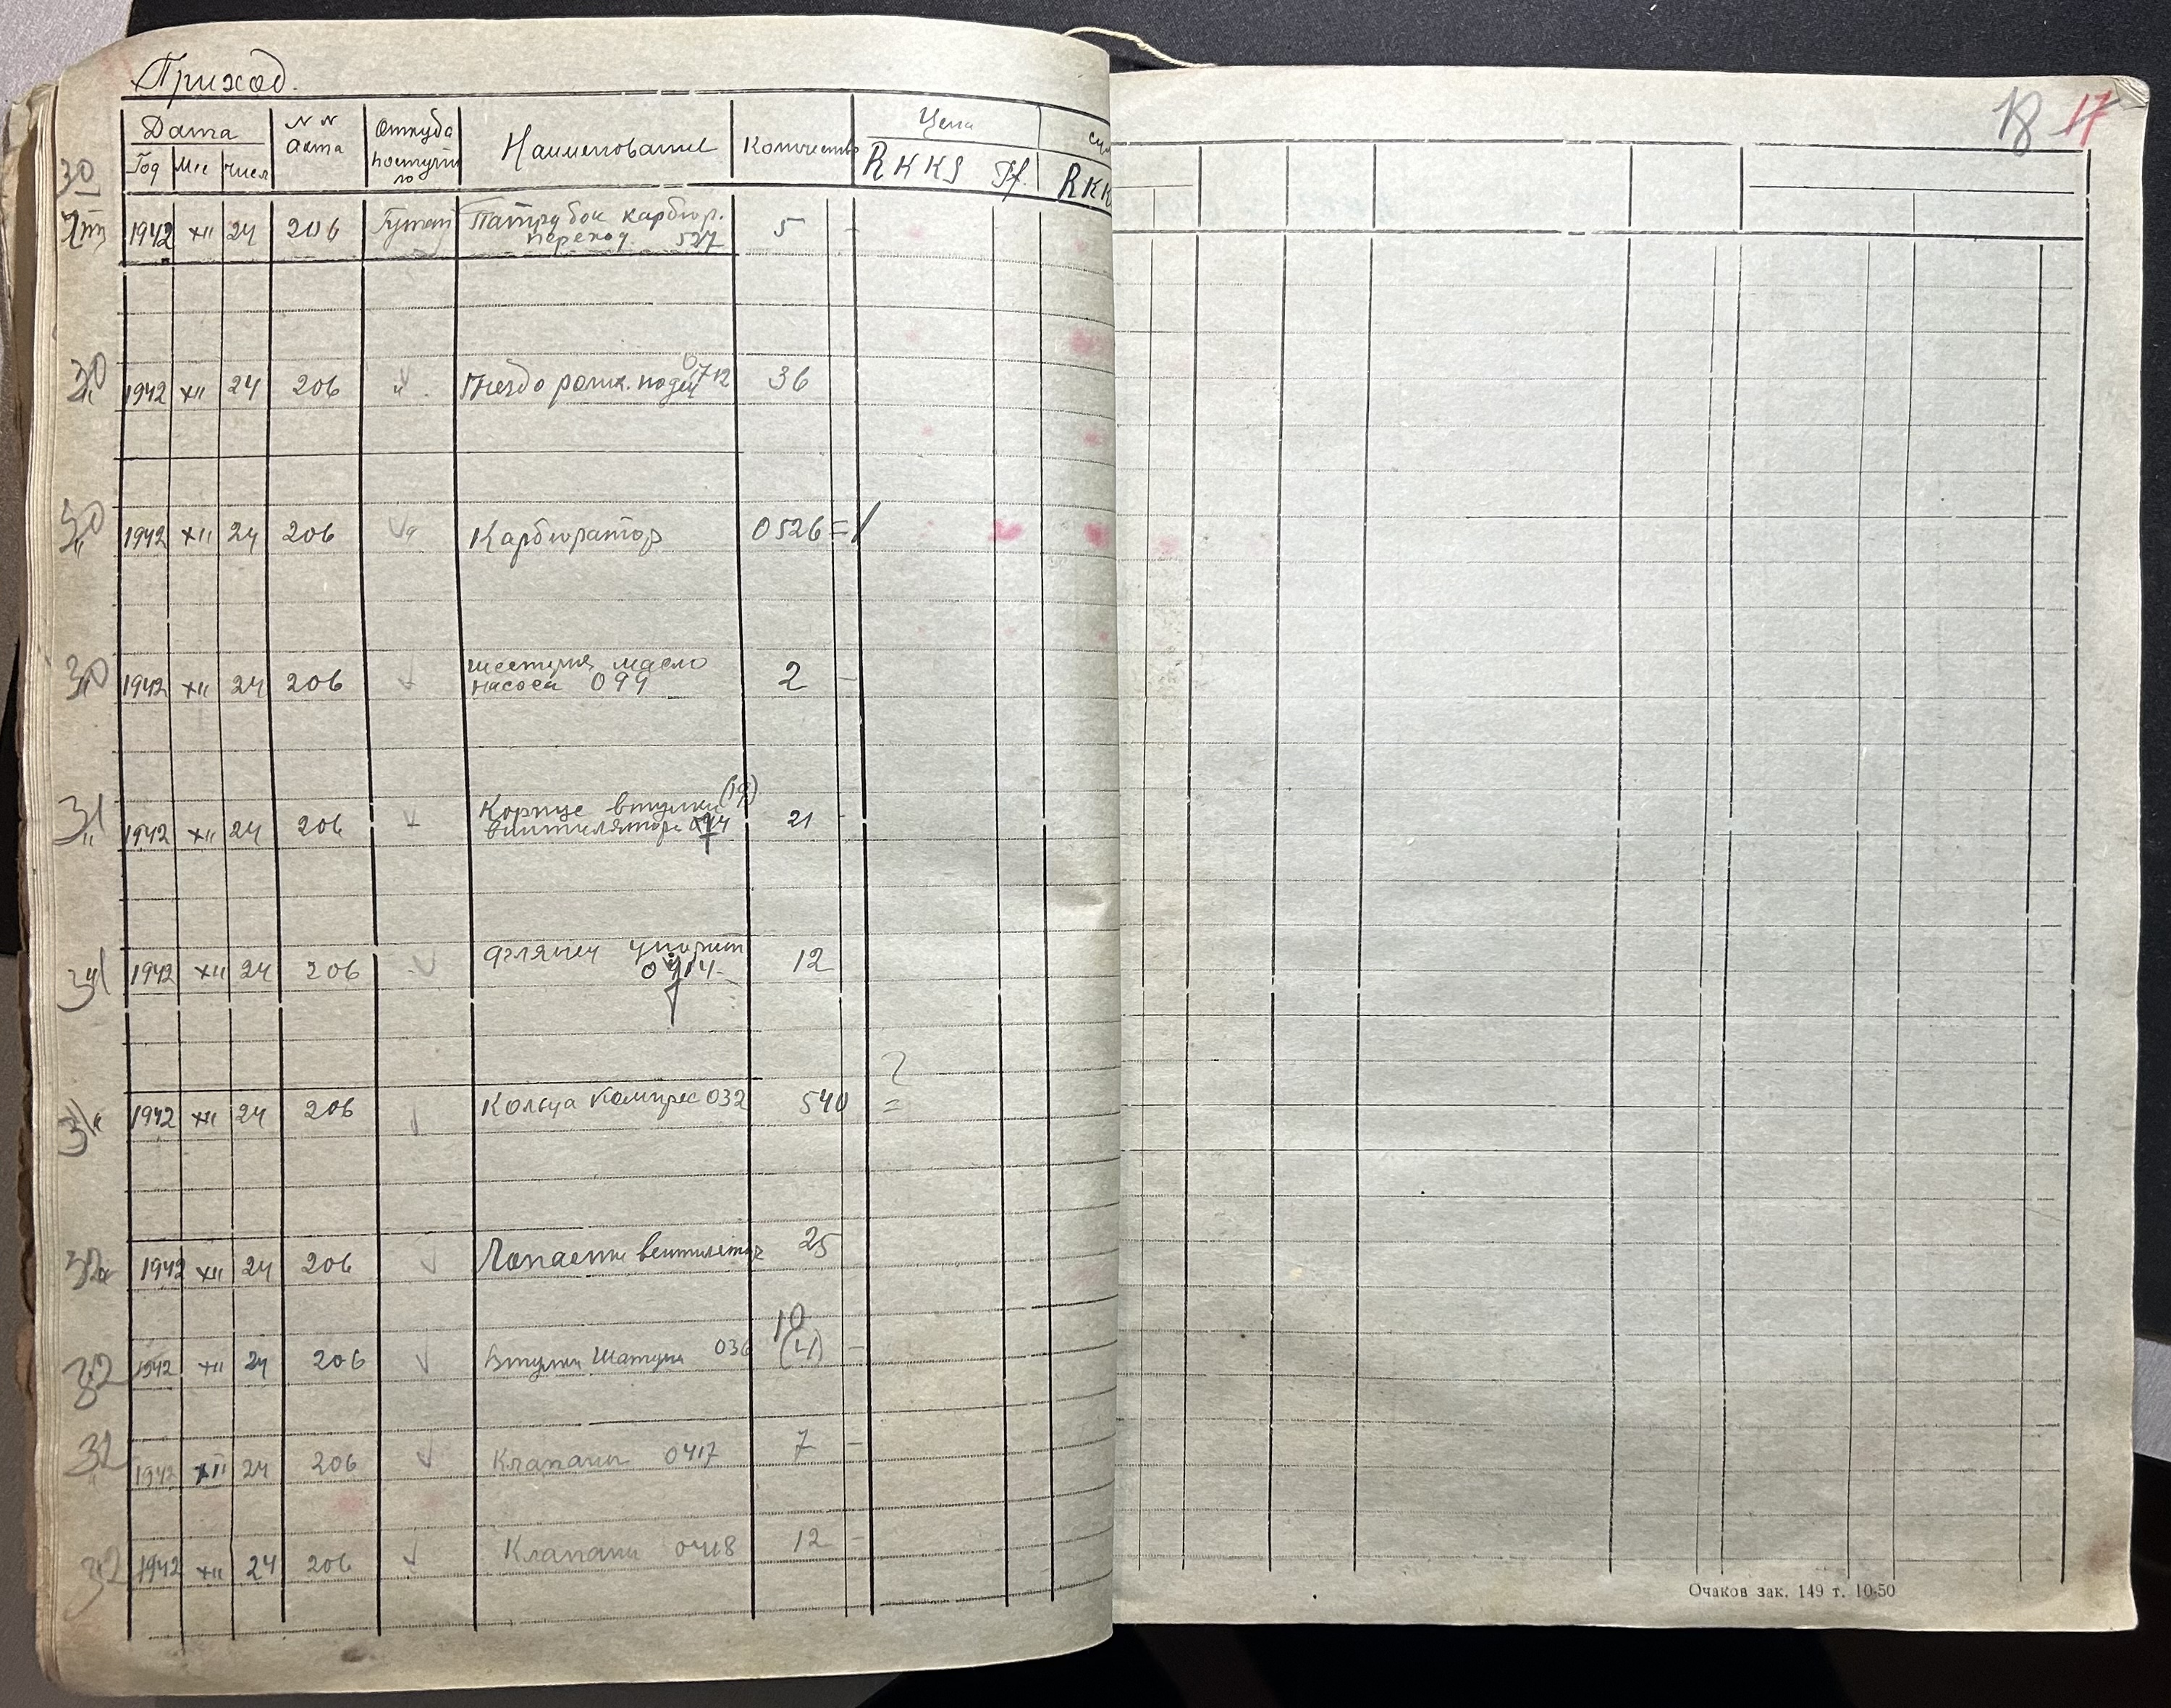 Приход.
18 17
Дата
N N акта
Откуда поступило
Наименование
Количество
Цена
Год Мес Число
RKKS Pf.
RKK
30
1942 XII 24 206 Патрубок карбюр. 5 -
переход. 527
30 1942 XII 24 206 " Гнездо 36
30 1942 XII 24 206 " Карбюратор 0526 = 1
30 1942 XII 24 206 шестерня масло 2 -
насоса 099
31 1942 XII 24 206 Корпус втулки (19) 21 -
вентилятора
31 1942 XII 24 206 Флянец 12
?
31 1942 XII 24 206 Кольца компрес 032 540 =
32 1942 XII 24 206 Лопасти вентилятор 25
10
32 1942 XII 24 206 Втулки Шатуна 036 (4) -
32 1942 XII 24 206 Клапани 0417 7 -
32 1942 XII 24 206 Клапани 0418 12 -
Очаков зак. 149 т. 10-50